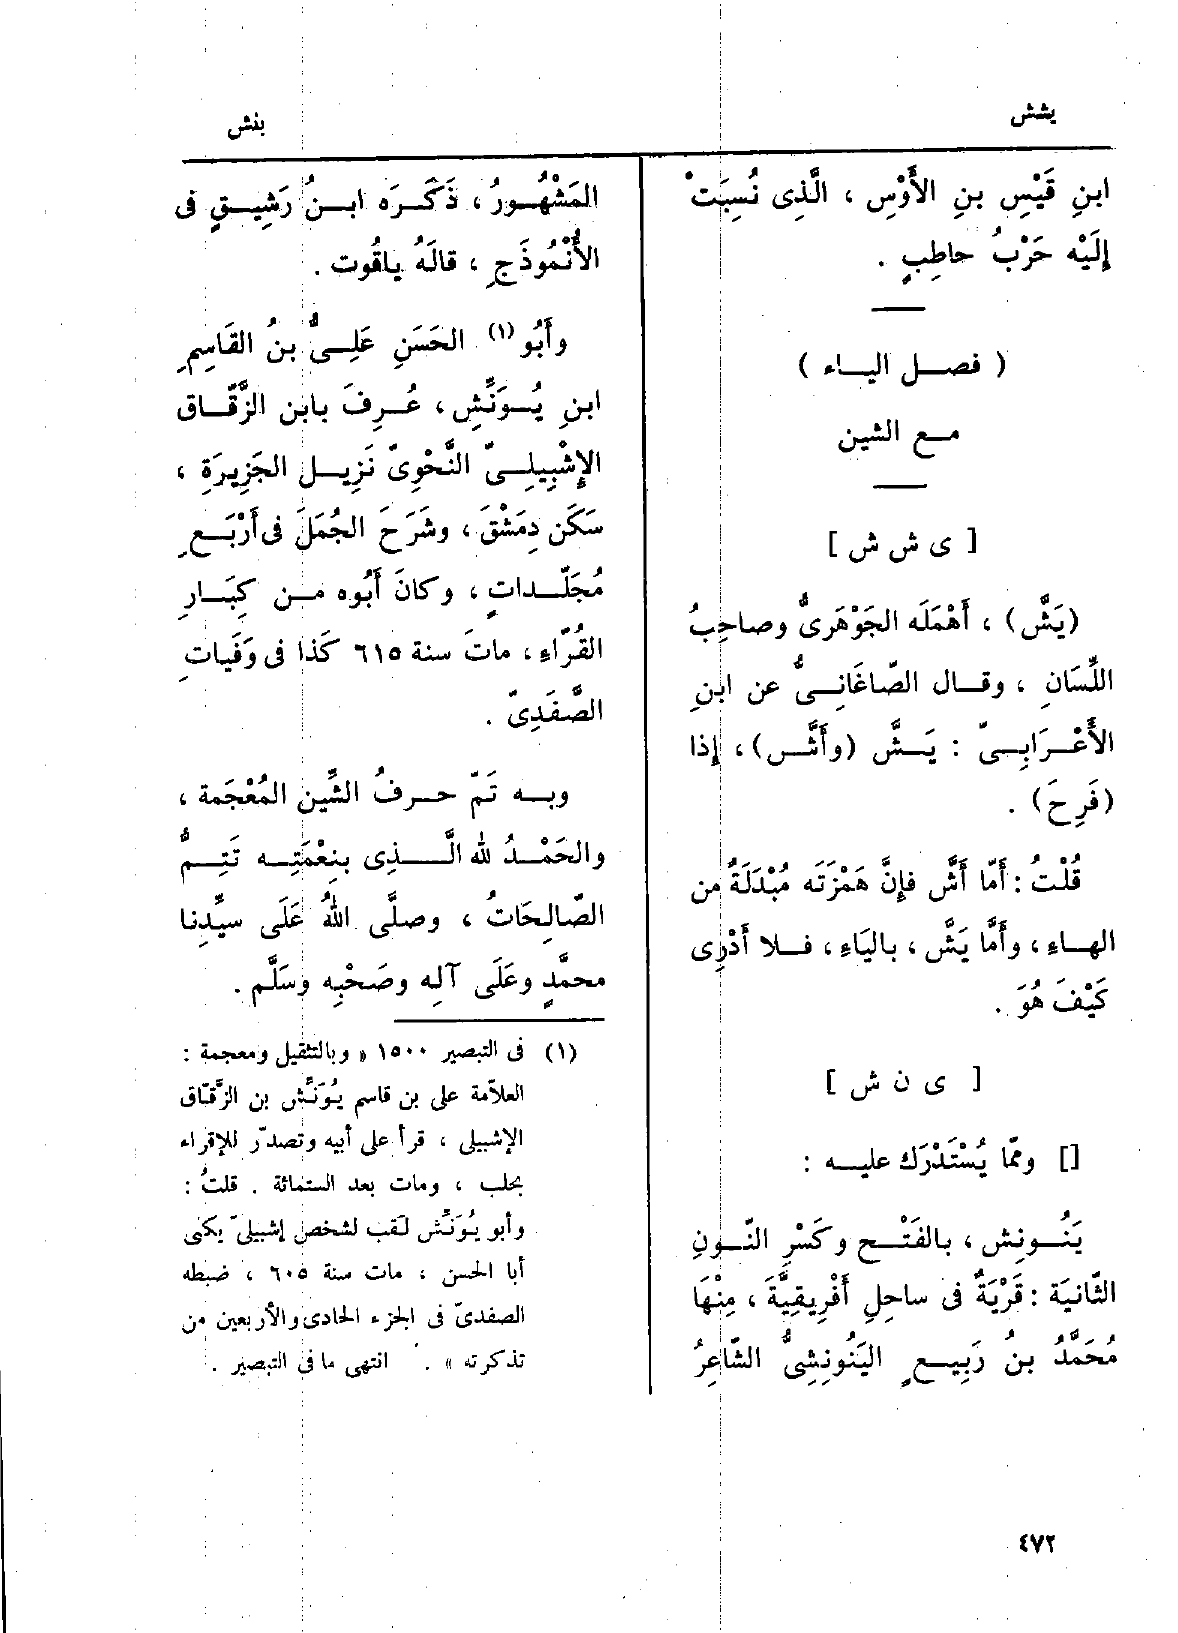 يشش
ينش
ابنِ قَيْسِ بنِ الأَوْسِ ، الَّذِى نُسِبَتْ
إِلَيْه حَرْبُ حاطِبٍ .
( فصـل اليـاء )
مـع الشين
[ ى ش ش ]
(يَشَّ) ، أَهْمَلَه الجَوْهَرِىُّ وصاحِبُ
اللِّسَانِ ، وقـال الصّاغَانِـىُّ عن ابنِ
الأَعْـرَابِـىّ : يَـشَّ (وأَشَّـ) ، إذا
(فَرِحَ) .
قُلْتُ : أَمّا أَشَّ فإِنَّ هَمْزَتَه مُبْدَلَةٌ من
الهـاءِ ، وأَمَّا يَشَّ ، بالياءِ ، فـلا أَدْرِى
كَيْفَ هُوَ .
[ ى ن ش ]
[] وممّا يُسْتَدْرَك عليـه :
يَنُـونِش ، بالفَتْـح وكَسْرِ النّـونِ
الثّانِيَة : قَرْيَةٌ فى ساحِلِ أَفْرِيقِيَّةَ ، مِنْهَا
مُحَمَّدُ بنُ رَبِيـعٍ اليَنُونِشِىُّ الشّاعِرُ
المَشْهُـورُ ، ذَكَـرَه ابـنُ رَشِيـقٍ فى
الأُنْمُوذَجِ ، قالَهُ ياقُوت .
وأَبُو (١) الحَسَنِ عَلِـىُّ بنُ القَاسِمِ
ابنِ يُـوَنَّشِ ، عُـرِفَ بابن الزَّقّـاق
الإِشْبِيلِـىّ النَّحْوِىّ نَزِيـل الجَزِيرَةِ ،
سَكَن دِمَشْقَ ، وشَرَحَ الجُمَلَ فى أَرْبَـعِ
مُجَلّـداتٍ ، وكانَ أَبُوه مـن كِبَـارِ
القُرّاءِ ، ماتَ سنة ٦١٥ كَذا فى وَفَياتِ
الصَّفَدِىّ .
وبـه تَمّ حـرفُ الشِّينِ المُعْجَمة ،
والحَمْـدُ لله الَّـذِى بنِعْمَتِـه تَتِـمُّ
الصّالِحَاتُ ، وصلَّى اللهُ عَلَى سيِّدِنا
محمَّدٍ وعَلَى آلِه وصَحْبِه وسَلَّم .
(١) فى التبصير ١٥٠٠ « وبالتثقيل ومعجمة :
العلاّمة على بن قاسم يُوَنَّش بن الزَّقّاق
الإشبيلى ، قرأ على أبيه وتصدّر للإقراء
بحلب ، ومات بعد الستمائة . قلتُ :
وأبو يُوَنَّش لقب لشخص إشبيلىّ يكنى
أبا الحسن ، مات سنة ٦٠٥ ، ضبطه
الصفدىّ فى الجزء الحادى والأربعين من
تذكرته » . انتهى ما فى التبصير .
٤٧٢